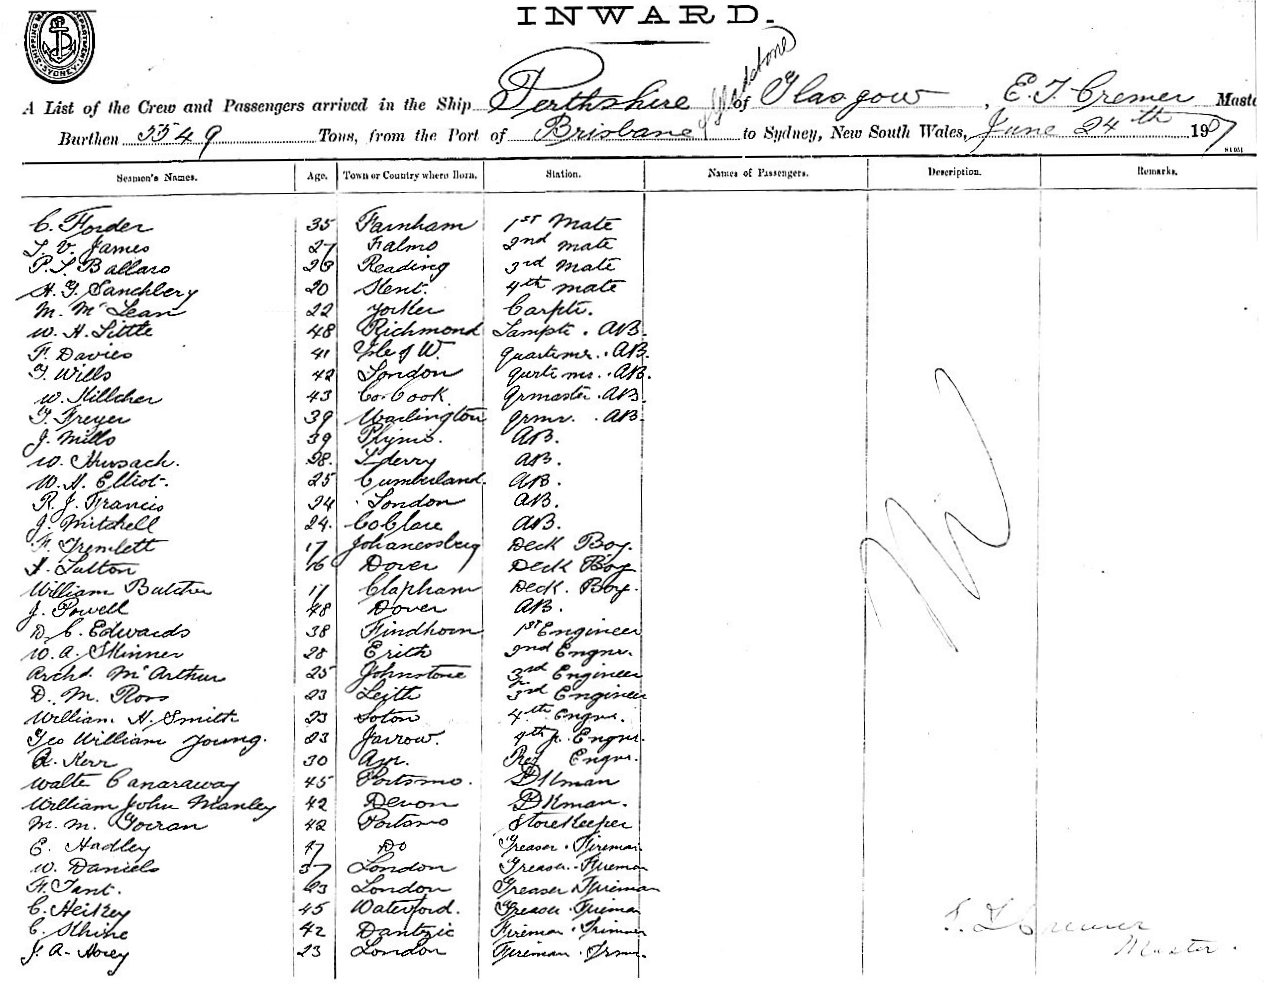 INWARD.
SHIPPING MASTER'S DEPARTMENT SYDNEY
& Gladstone
A List of the Crew and Passengers arrived in the Ship Perthshire of Glasgow, E. T. Cremer Maste
Burthen 5549 Tons, from the Port of Brisbane to Sydney, New South Wales, June 24th 1907
Seamen's Names. Age. Town or Country where Born. Station. Names of Passengers. Description. Remarks.
C. Forder 35 Farnham 1st Mate
T. V. James 27 Falmo 2nd mate
P. S. Ballard Reading 3rd Mate
H. G. 20 Kent. 4th mate
M. McLean 22 Carptr.
W. H. Little 48 Richmond Lamptr. AB.
F. Davies 41 Isle of W. quartemr. AB.
G. Wills 42 London qurtemr. AB.
W. Killcher 43 Co. Cook. qrmaster. AB.
G. Freyer 39 Warlington qrmr. AB.
J. Mills 39 Plymo. AB.
W. 28. L'derry AB.
W. H. Elliot. 25 Cumberland. AB.
R. J. Francis 24 London AB.
J. Mitchell 24. Co Clare AB.
F. Tremlett 17 Johanersberg Deck Boy.
Sutton 16 Dover Deck Boy
William Butcher 17 Clapham Deck. Boy.
J. Powell 48 Dover AB.
D. C. Edwards 38 Findhorn 1st Engineer
W. A. Skinner 28 Erith 2nd Engnr.
Archd. McArthur 25 Johnstone 3rd Engineer
D. M. Ross 23 Leith 3rd Engineer
William H. Smith 23 Soton 4th Engnr.
Geo William Young. 23 Jarrow. 4th Engnr.
A. Kerr 30 Ayr. Ref Engnr.
Walte Canaraway 45 Portsmo. DKman
William John Manley 42 Devon DKman.
M. M. Gorran 42 Portsmo StoreKeeper
E. Hadley 47 Do Greaser. Fireman
W. Daniels 37 London Greaser. Fireman
F. Tant. 23 London Greaser Fireman
C. Heikey 45 Waterford. Greaser. Fireman
C. 42 Dantzic Fireman. Trimmer
J. A. Hovey 23 London Fireman. Trmr.
Nil
E. T. Cremer
Master.